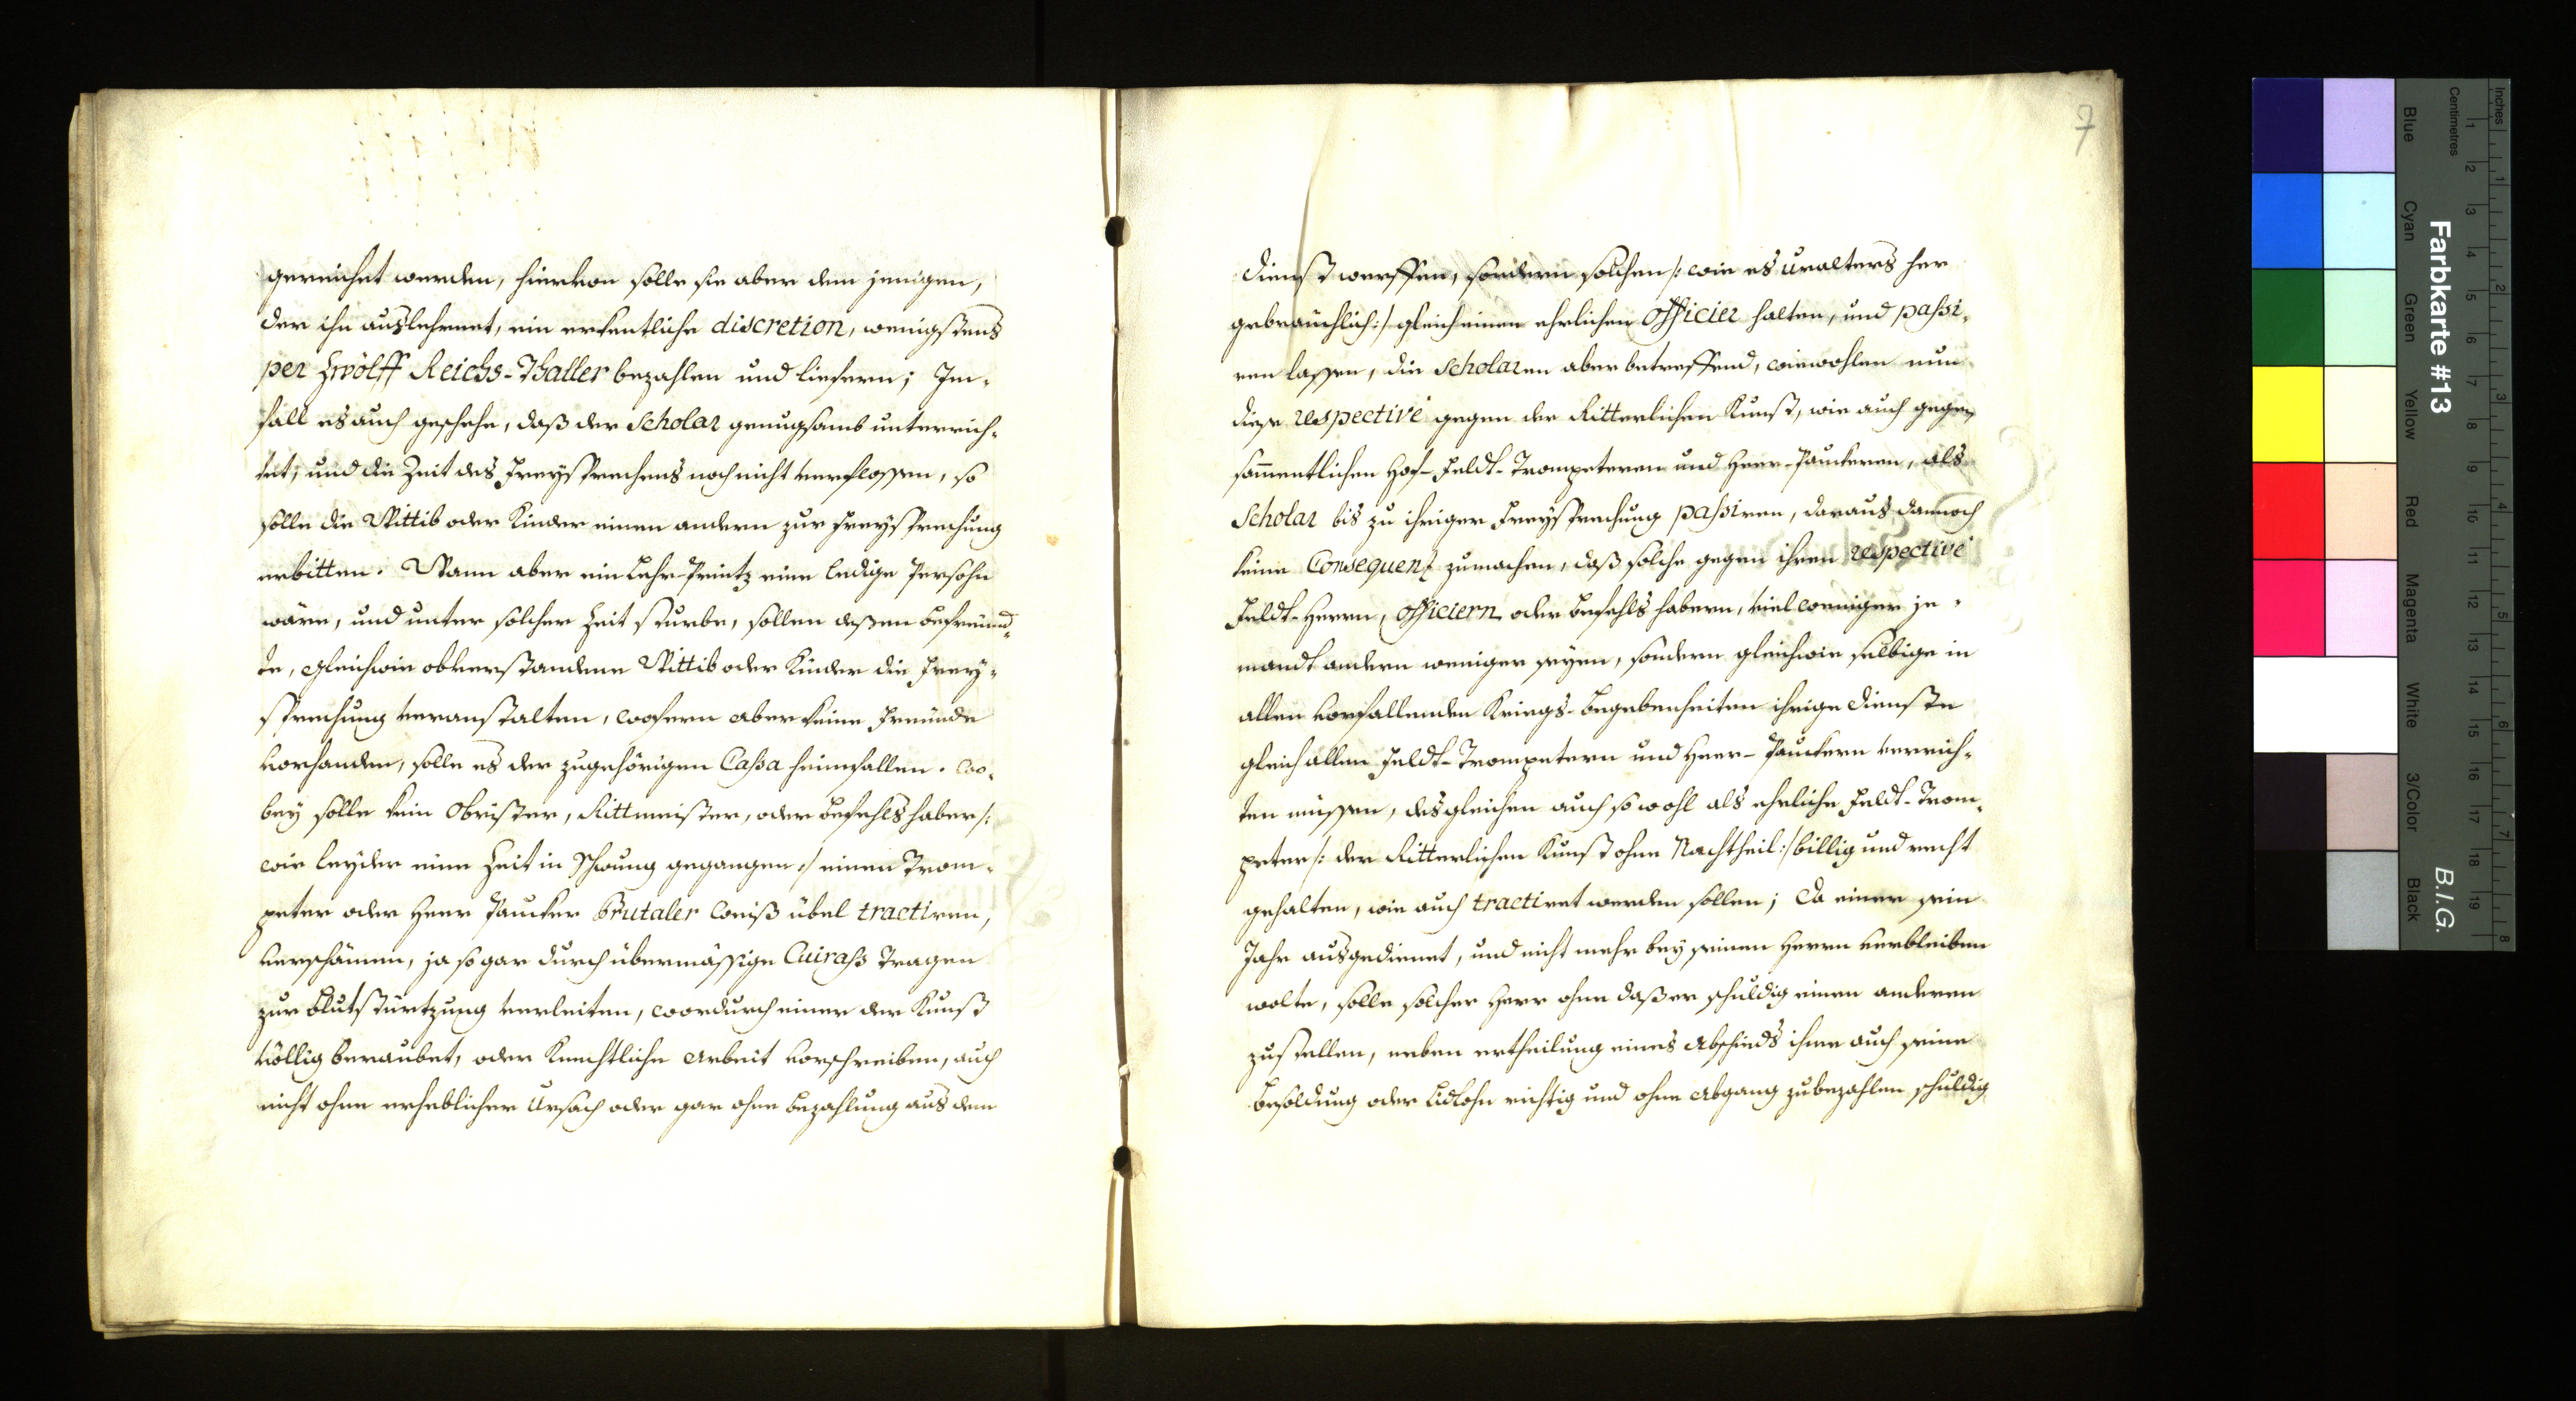 gereichet werden, hiervon solle sie aber dem jenigen,
der ihn auslehrnet, ein erkentliche discretion, wenigstens
per Zwölff Reichs-Thaller bezahlen und liefern; Im-
fall es auch geschehe, daß der Scholar genugsamb unterrich-
tet, und die Zeit des Freysprechens noch nicht verflossen, so
solle die Wittib oder Kinder einen andern zur Freysprechung
erbitten. Wann aber ein Lehr-Printz eine ledige Persohn
wäre, und unter solcher Zeit sturbe, sollen deßen befreünd-
te, gleichwie obverstandene Wittib oder Kinder die Frey-
sprechung veranstalten, wofern aber keine Freünde
vorhanden, solle es der zugehörigen Cassa heimfallen. Wo-
bey solle kein Obrister, Rittmeister, oder Befehlshaber /:
wie leyder eine Zeit in Schwung gegangen :/ einen Trom-
peter oder Heer Paucker Brutaler weiß übel tractiren,
verschämen, ja so gar durch übermässige Cuirass tragen
zur Blutstürtzung verleiten, wordurch einer der Kunst
völlig beraubet, oder Knechtliche Arbeit vorschreiben, auch
nicht ohne erheblicher Ursach oder gar ohne Bezahlung aus dem
7
Dienst werffen, sondern solchen /: wie es uralters her
gebräuchlich :/ gleich einen ehrlichen Officier halten, und passi-
ren lassen, die Scholaren aber betreffend, wiewohlen nun
diese respectivè gegen der Ritterlichen Kunst, wie auch gegen
sammentlichen Hof- Feldt-Trompeteren und Heer-Pauckeren, als
Scholar bis zu ihriger Freysprechung passiren, daraus dannoch
keine Consequenz zumachen, daß solche gegen ihren respectivè
Feldt-Herrn, Officiern oder Befehlshabern, viel weniger je-
mandt andern weniger seyen, sondern gleichwie selbige in
allen vorfallenden Kriegs-Begebenheiten ihrige Dienste
gleich allen Feldt-Trompetern und Heer-Pauckern verrich-
ten müssen, desgleichen auch so wohl als ehrliche Feldt-Trom-
peter /: der Ritterlichen Kunst ohne Nachtheil :/ billig und recht
gehalten, wie auch tractiret werden sollen; Da einer sein
Jahr ausgedienet, und nicht mehr bey seinen Herrn verbleiben
wolte, solle solcher Herr ohne daß er schuldig einen anderen
zustellen, neben ertheilung eines Abschieds ihme auch seine
Besoldung oder Lidlohn richtig und ohne Abgang zubezahlen schuldig
Farbkarte #13
B.I.G.
Inches
Centimetres
1 2 3 4 5 6 7 8
1 2 3 4 5 6 7 8 9 10 11 12 13 14 15 16 17 18 19
Blue Cyan Green Yellow Red Magenta White 3/Color Black